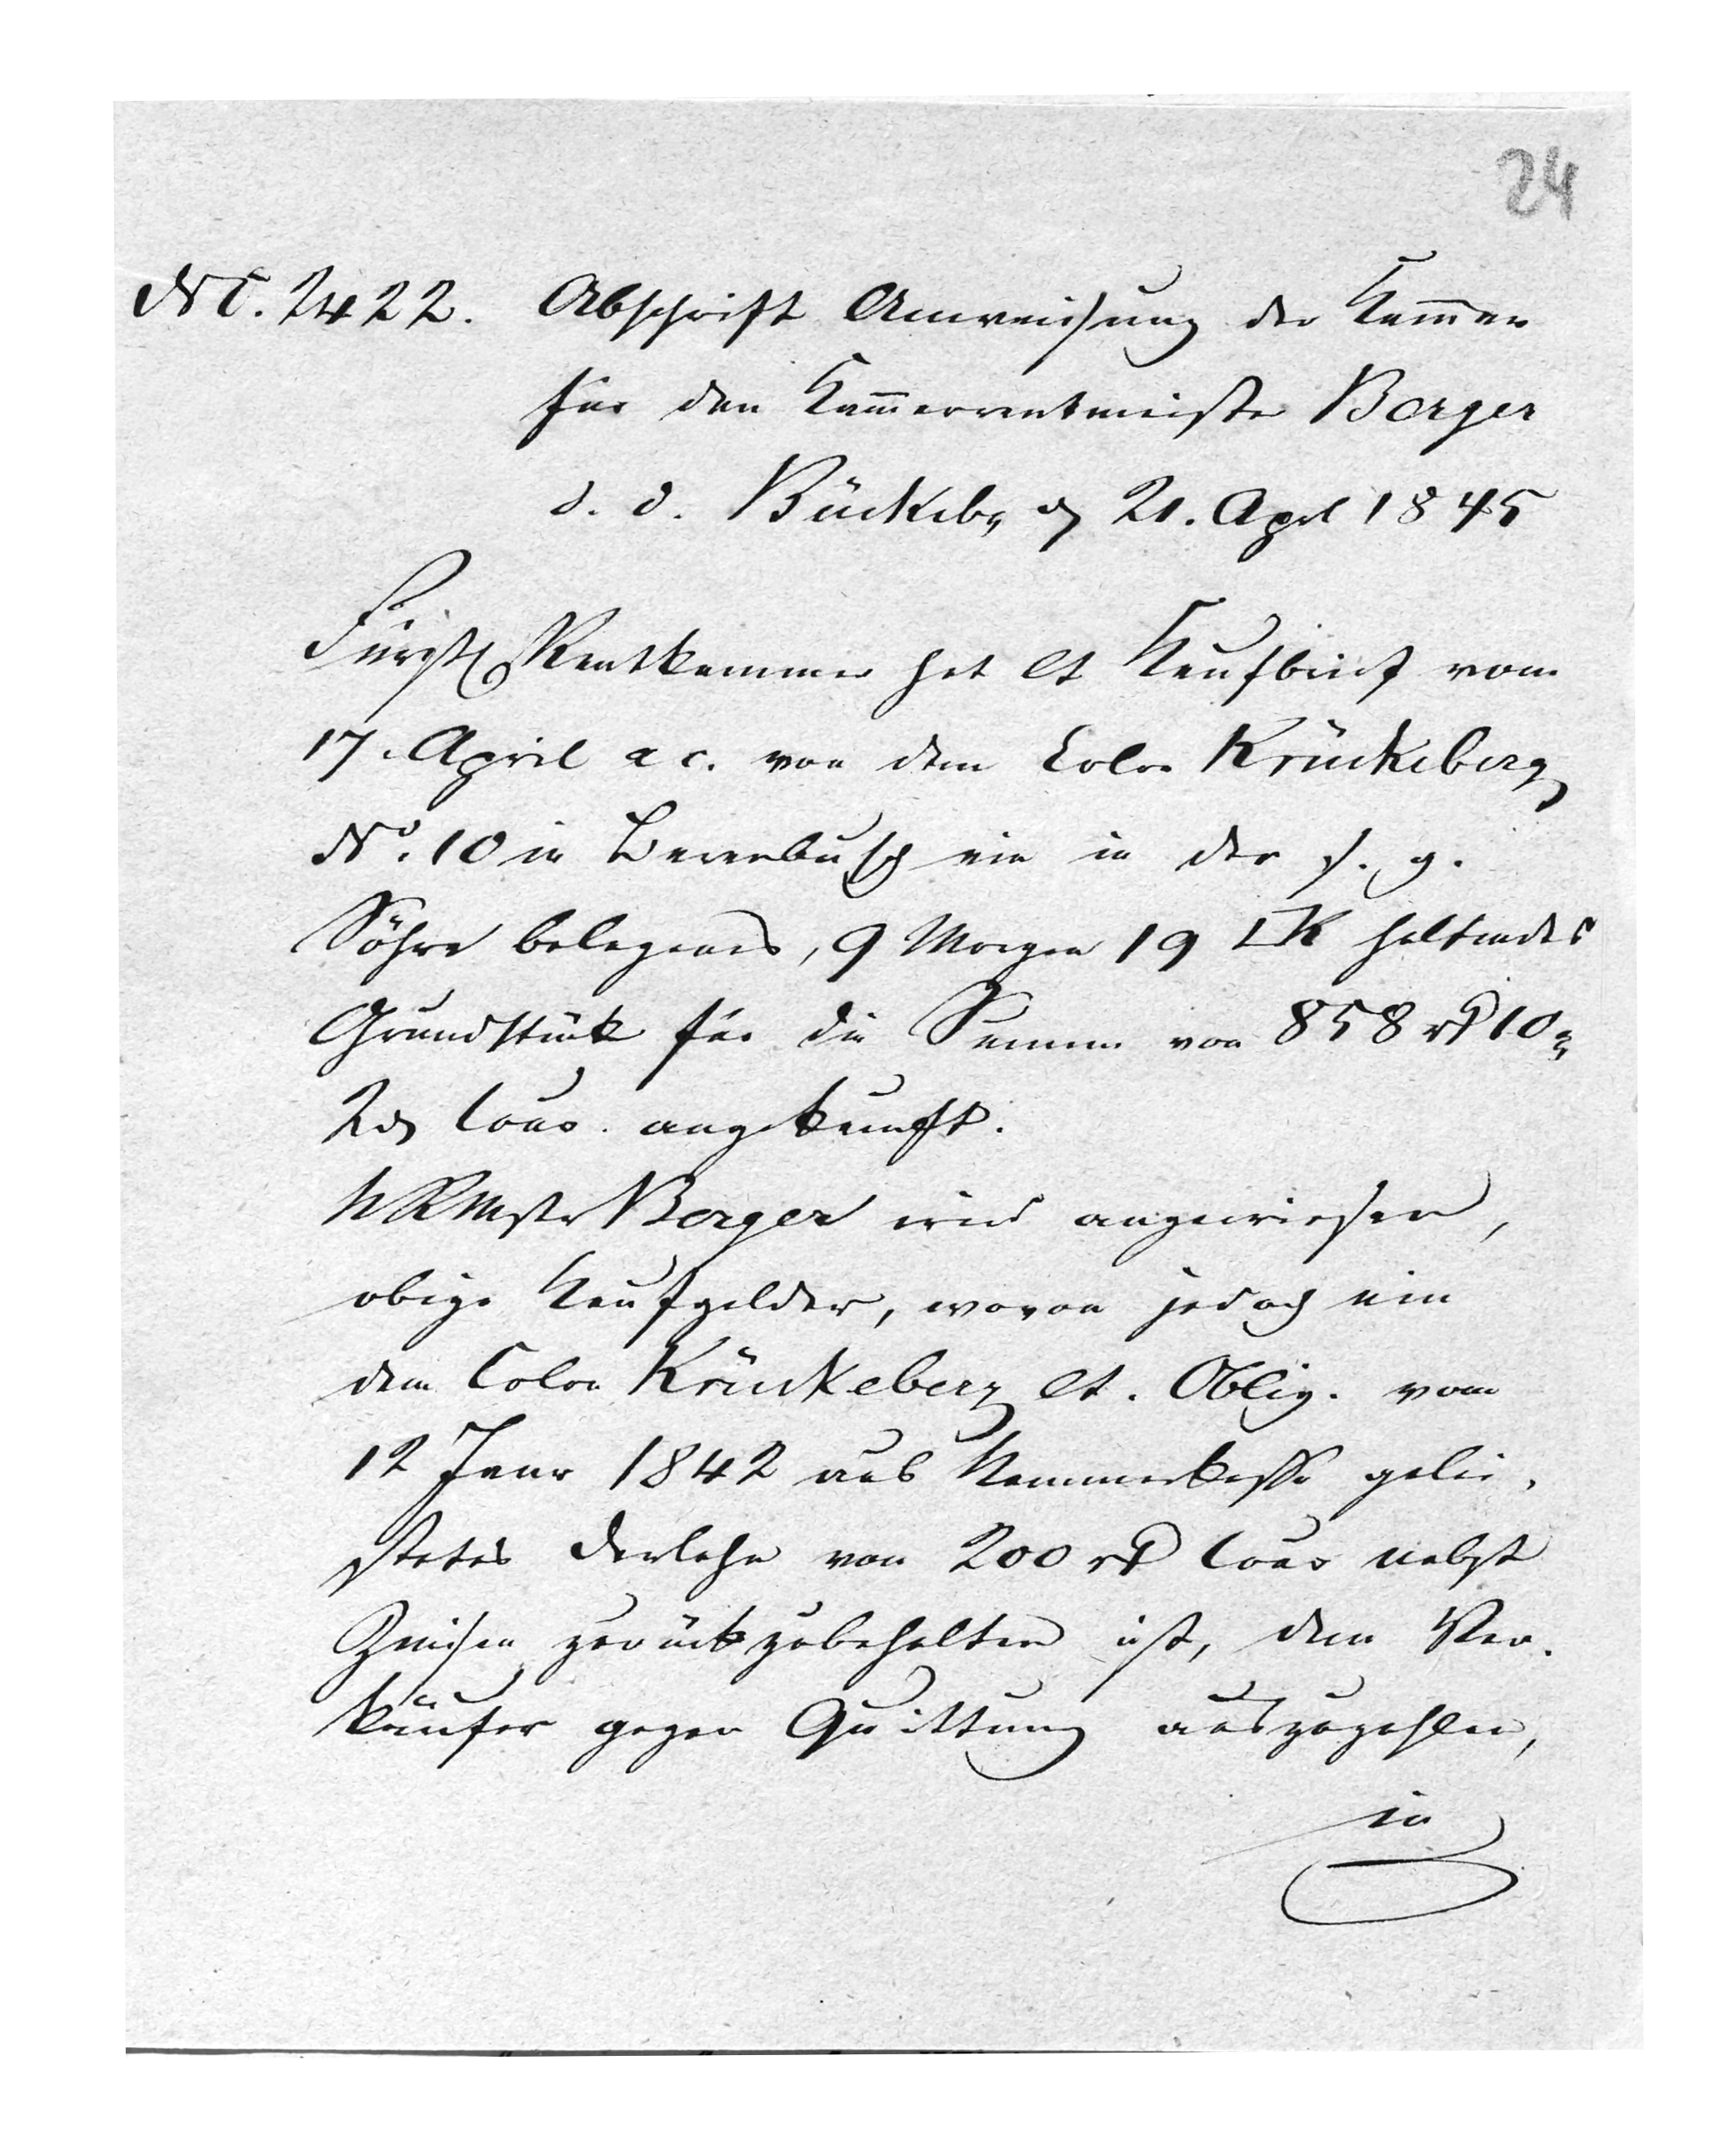 24
N C. 2422. Abschrift Anweisung der Kam̄er
für den Kam̄errentmeister Berger
d. d. Bückebg d 21. Apl 1845
Fürstl Rentkammer hat lt Kaufbrief vom
17. April a c. von dem Colon Krückeberg
No. 10 in Berenbusch ein in der s. g.
Söhre belegenes, 9 Morgen 19 □R haltendes
Grundstück für die Summe von 858 rt 10 g
2 d Cour. angekauft.
KRMstr Berger wird angewiesen,
obige Kaufgelder, wovon jedoch ein
dem Colon Krückeberg lt. Oblig. vom
12 Janr 1842 aus Kammerkasse gelei-
stetes Darlehn von 200 rt Cour nebst
Zinsen zurückzubehalten ist, dem Ver-
käufer gegen Quittung auszuzahlen,
in